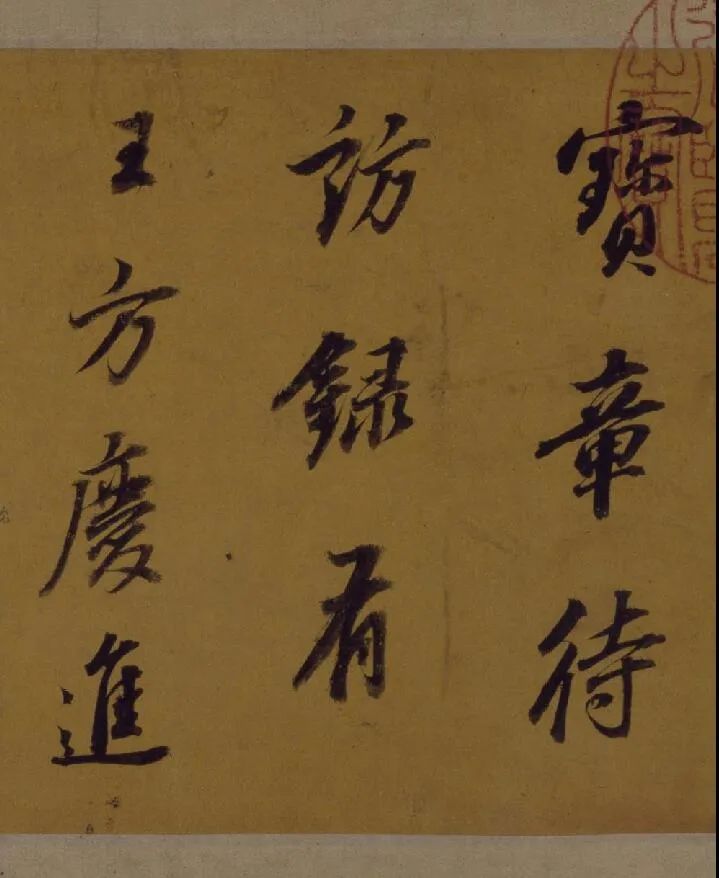 寳章待
訪録有
王方慶進